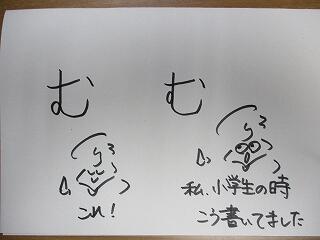 む む
これ!
私、小学生の時
こう書いてました